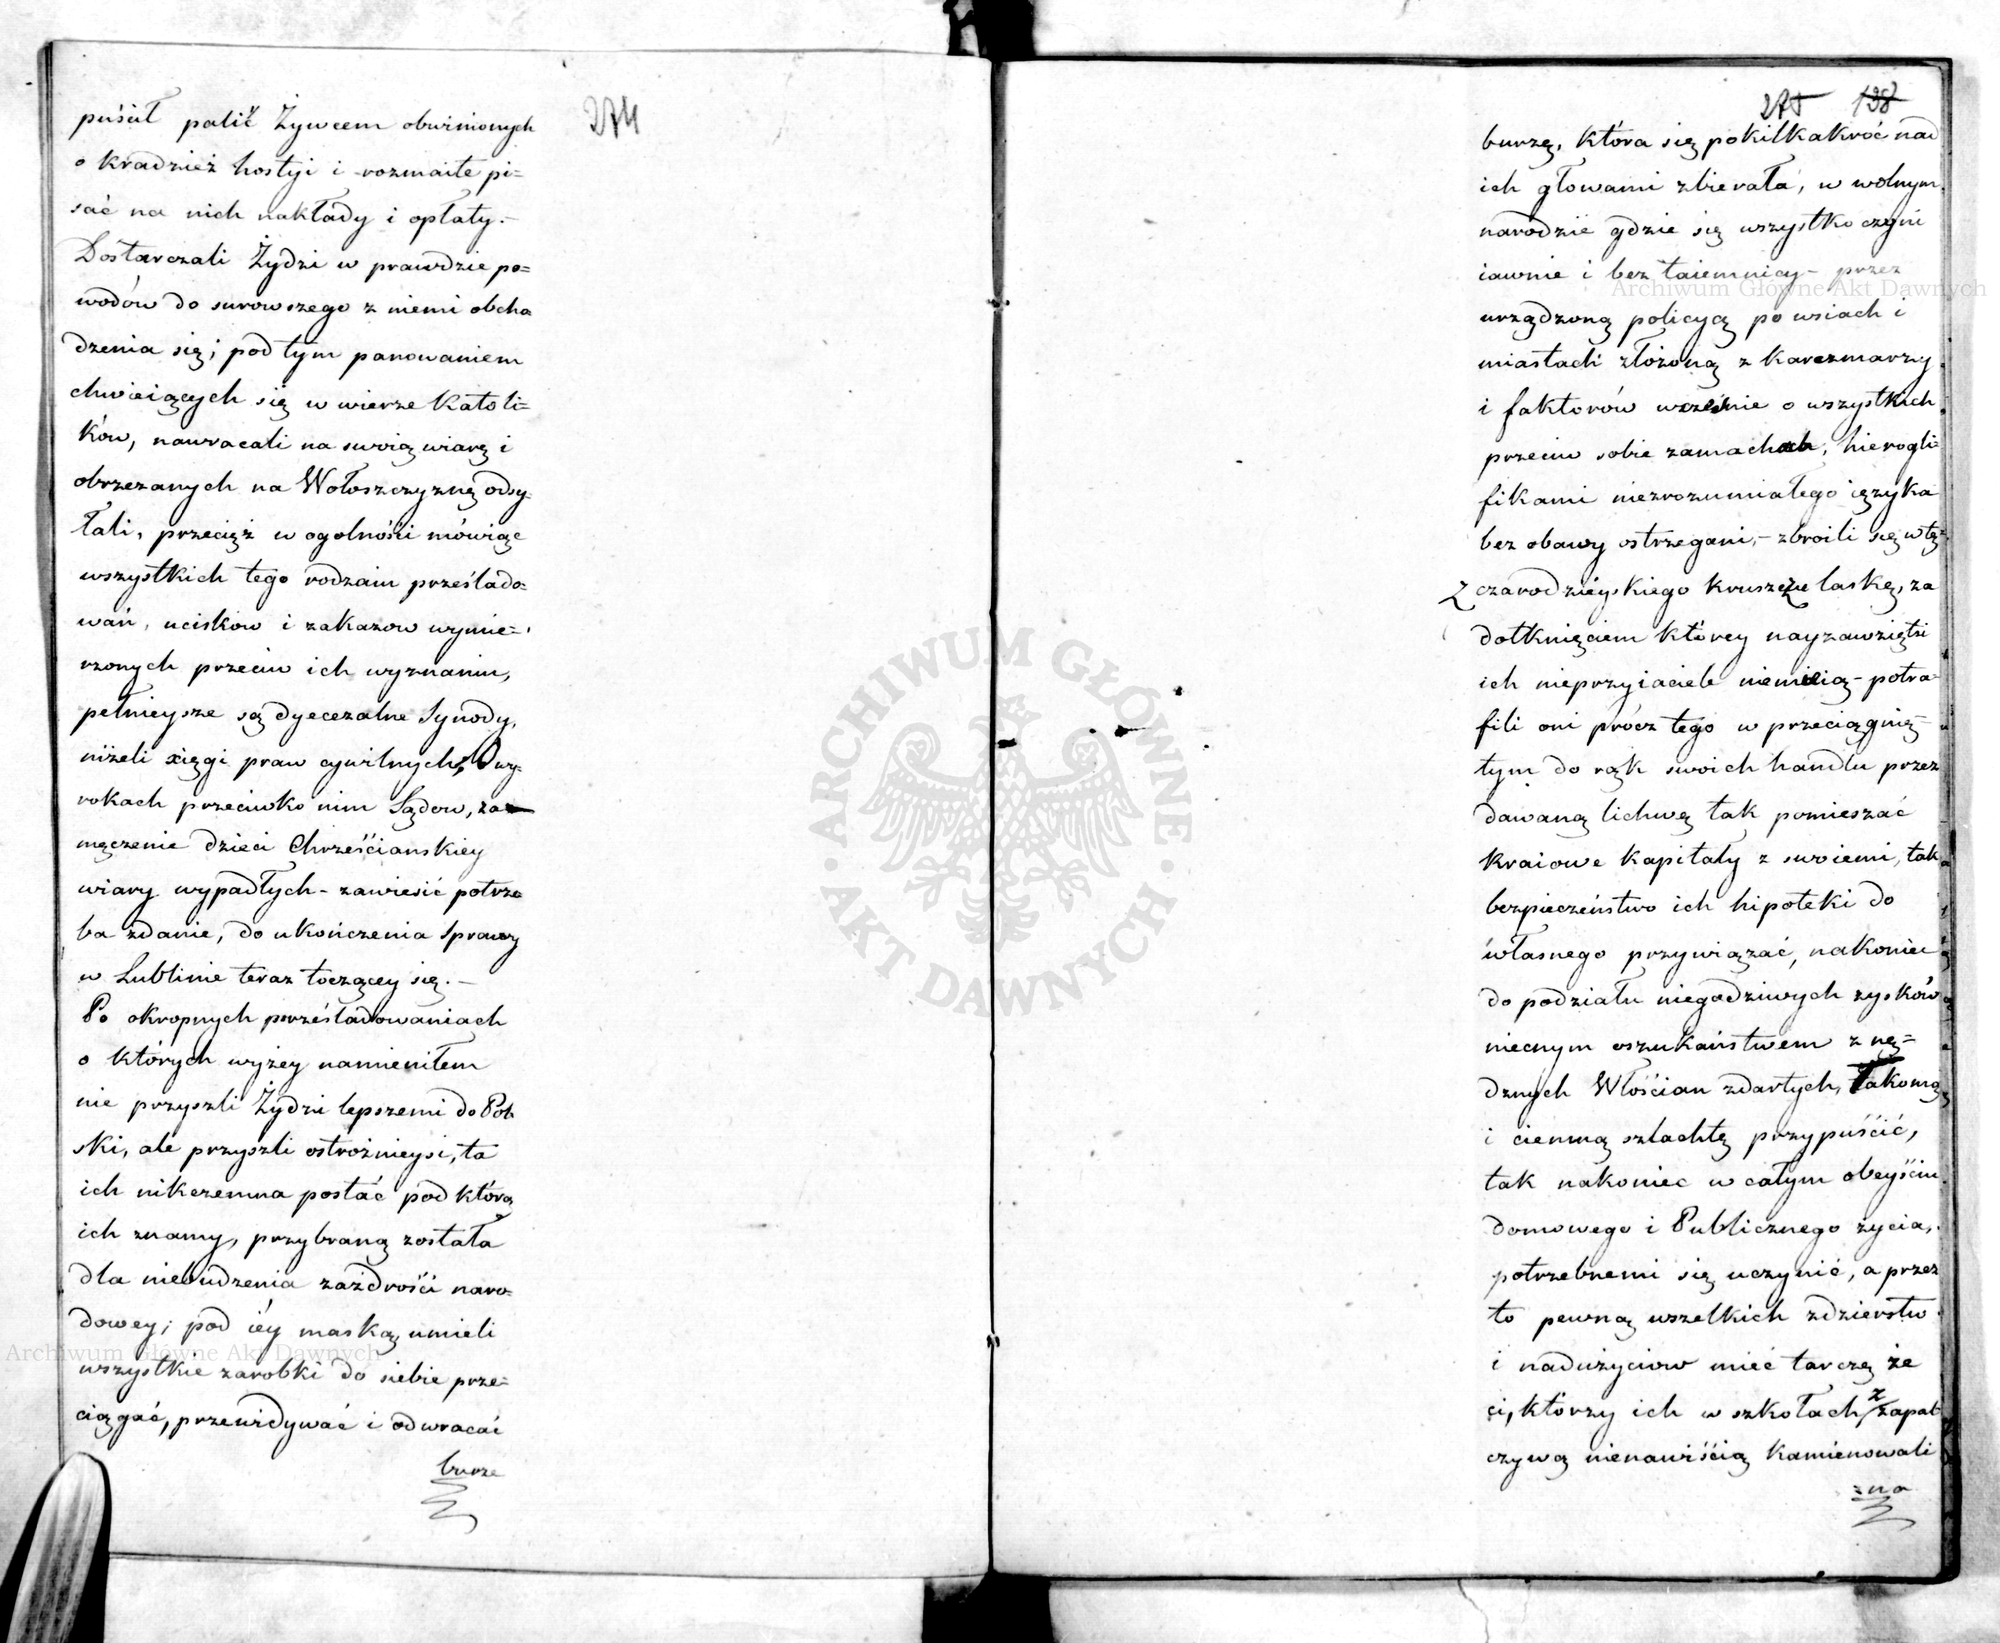 274
puścił palić Żywcem obwinionych
o kradzież hostyi i rozmaite pi=
sać na nich nakłady i opłaty.-
Dostarczali Żydzi w prawdzie po=
wodów do surowszego z niemi obcho
dzenia się; pod tym panowaniem
chwieiących się w wierze Katoli=
ków, nawracali na swoią wiarę i
obrzezanych na Wołoszczyznę odsy-
łali, przecięż w ogolności mówiąc
wszystkich tego rodzaiu prześlado-
wań, uciskow i zakazow wymie=
rzonych przeciw ich wyznaniu,
pełnieysze są dyecezalne Synody,
niżeli xięgi praw cywilnych, O wy-
rokach przeciwko nim Sądow, za
męczenie dzieci Chrześcianskiey
wiary wypadłych - zawiesić potrze
ba zdanie, do ukończenia sprawy
w Lublinie teraz toczącey się.-
Po okropnych prześladowaniach
o których wyżey namieniłem
nie przyszli Żydzi lepszemi do Pol
ski, ale przyszli ostrożnieysi, ta
ich nikczemna postać pod którą
ich znamy, przybraną została
dla niebudzenia zazdrości naro-
dowey; pod iéy maską umieli
wszystkie zarobki do siebie prze=
ciągać, przewidywać i odwracać
burze
275 138
burzę, która się pokilkakroć nad
ich głowami zbierała, w wolnym
narodzie gdzie się wszystko czyni
iawnie i bez taiemnicy - przez
urządzoną policyą po wsiach i
miastach złożoną z karczmarzy
i faktorów wcześnie o wszystkich
przeciw sobie zamachach, hierogli=
fikami niezrozumiałego ięzyka
bez obawy ostrzegani, - zbroili się w tę
z czarodzieyskiego kruszczu laskę, za
dotknięciem którey nayzawziętsi
ich nieprzyiaciele niemieią - potra-
fili oni prócz tego w przeciągnię-
tym do rąk swoich handlu przez
dawaną lichwę tak pomieszać
kraiowe kapitały z swoiemi, tak
bezpieczeństwo ich hipoteki do
własnego przywiązać, nakoniec
do podziału niegodziwych zysków
niecnym oszukaństwem z nę=
dznych Włościan zdartych, łakomą
i ciemną szlachtę przypuścić,
tak nakoniec w całym obeyściu
domowego i Publicznego życia,
potrzebnemi się uczynić, a przez
to pewną wszelkich zdzierstw
i nadużyciow mieć tarczę że
ci, którzy ich w szkołach z zapal
czywą nienawiścią kamienowali
zna
ARCHIWUM GŁÓWNE AKT DAWNYCH
Archiwum Główne Akt Dawnych
Archiwum Główne Akt Dawnych